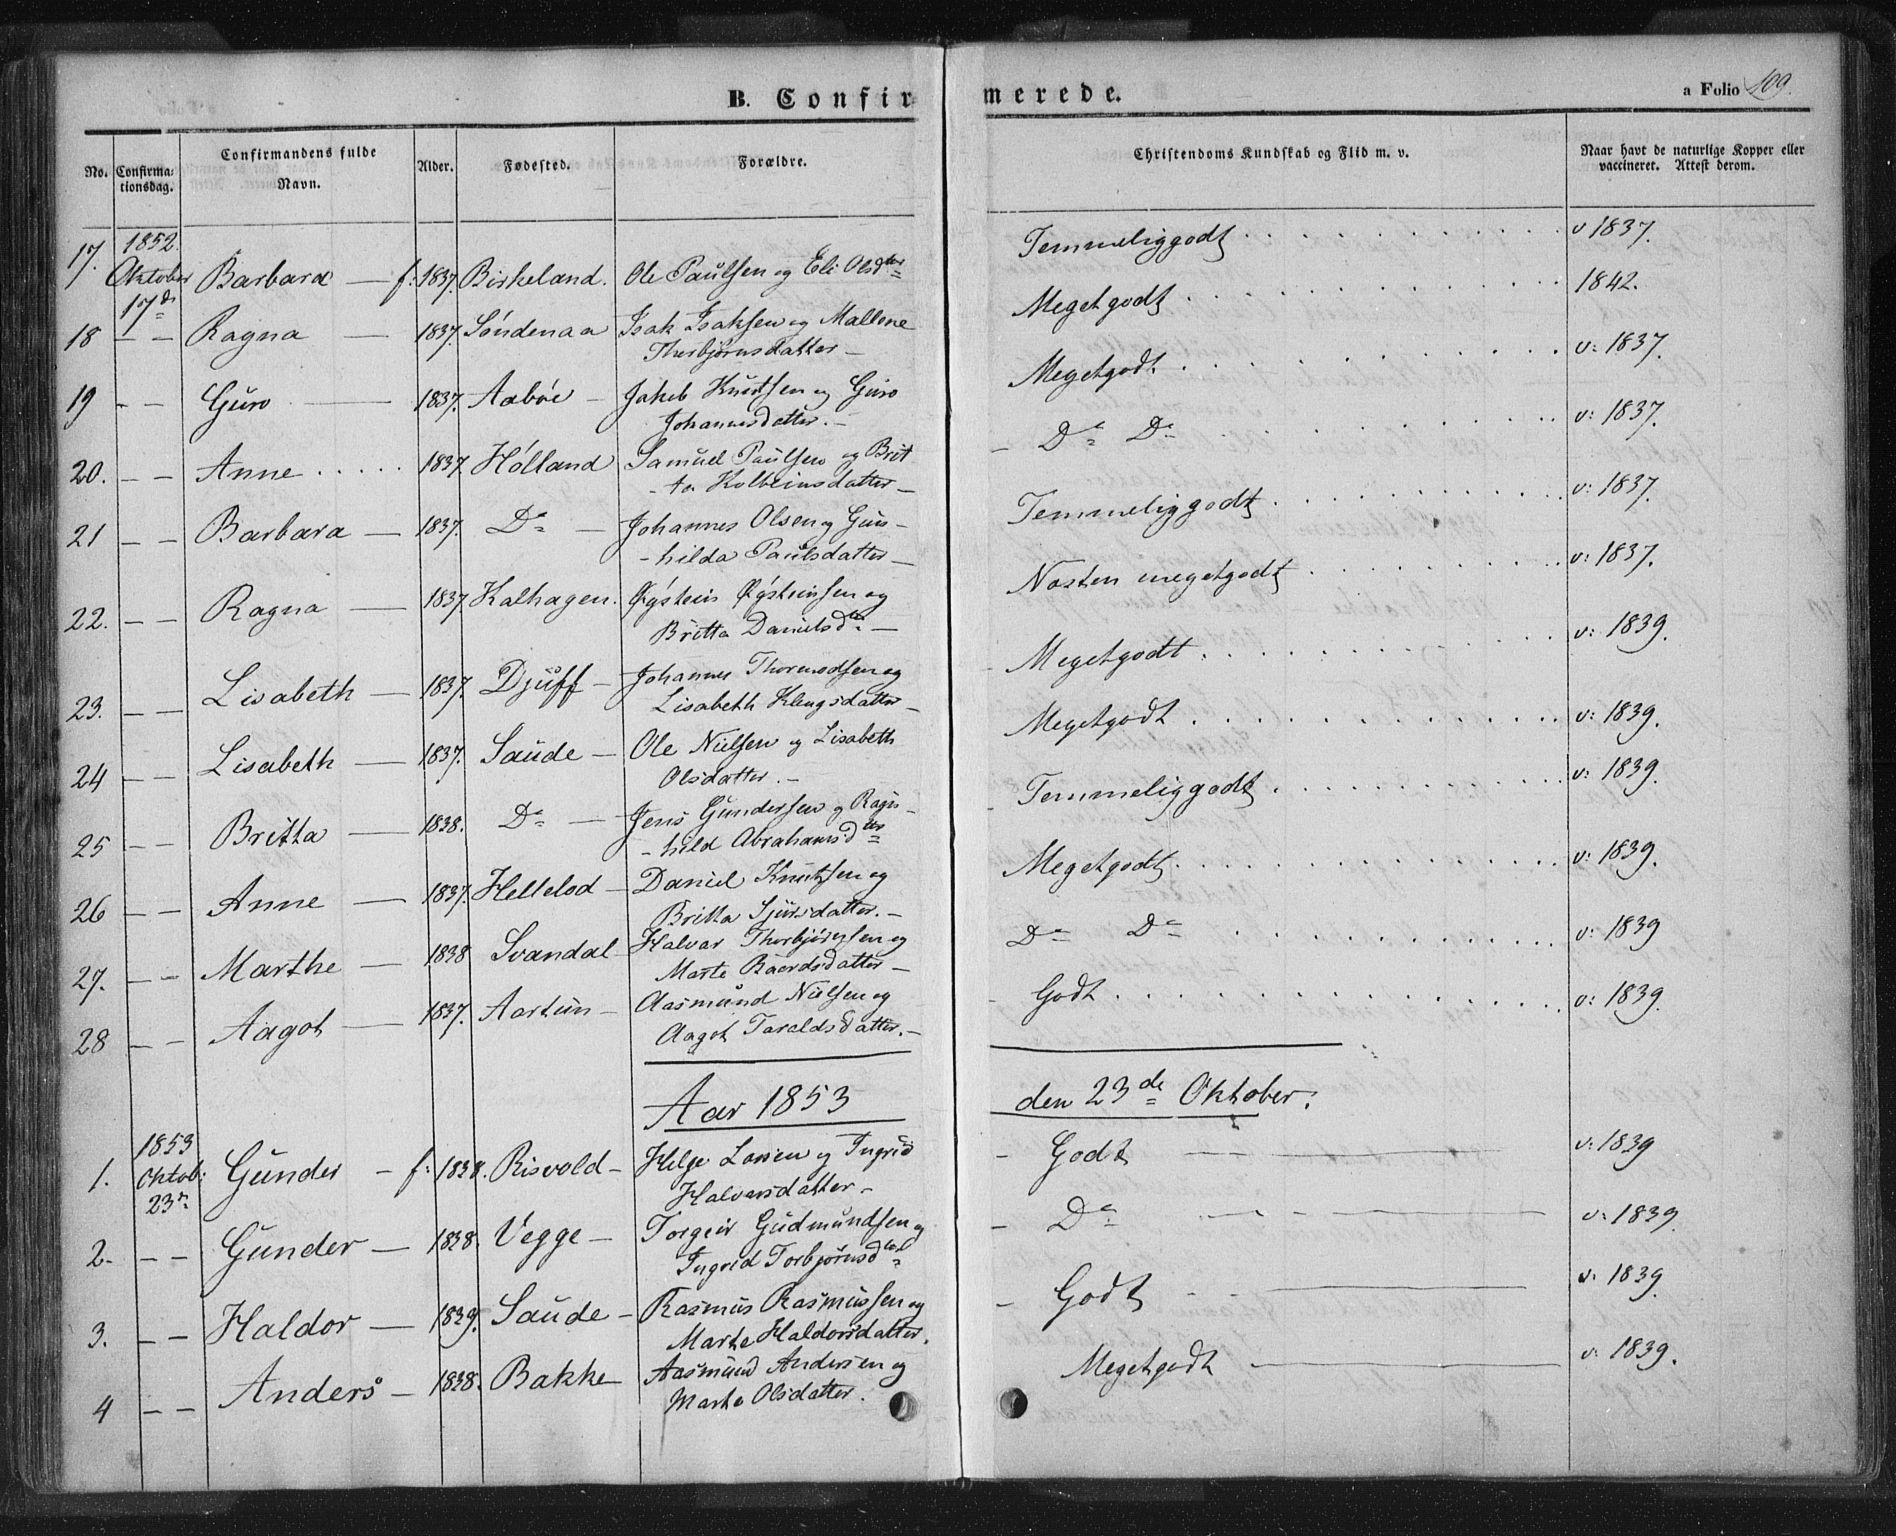 B. Confirmerede.
a Folio 109.
No. Confirmationsdag. Confirmandens fulde Navn. Alder. Fødested. Forældre. Christendoms Kundskab og Flid m. v. Naar havt de naturlige Kopper eller vaccineret. Attest derom.
17. 1852. Oktober 17de Barbara — f. 1837. Birkeland. Ole Paulsen og Eli Olsdtr Temmeliggodt v 1837.
18 — — Ragna — 1837. Søndenaa Isak Isaksen og Mallene
Thorbjørnsdatter — Megetgodt 1842.
19 — — Guro — 1837. Aabøe — Jakob Knutsen og Guro
Johannesdatter. — Megetgodt. v: 1837.
20. — — Anne 1837. Hólland Samuel Paulsen og Brit
ta Kolbeinsdatter — — Do Do v: 1837.
21 — — Barbara — 1837. Do — Johannes Olsen og Gun-
-hilda Paulsdatter — Temmeliggodt v: 1837.
22. — — Ragna — 1837. Kalhagen. Øystein Øysteinsen og
Britta Danielsdtr — Næsten megetgodt v: 1837.
23. — — Lisabeth — 1837. Djuff — Johannes Thormodsen og
Lisabeth Klengsdatter — Megetgodt v: 1839.
24 — — Lisabeth — 1837. Saude — Ole Nielsen og Lisabeth
Olsdatter. — Megetgodt v: 1839.
25 — — Britta — 1838. Do — Jens Gundersen og Ragn-
-hild Abrahamsdtr Temmeliggodt v: 1839.
26 — — Anne — 1837. Hellelod — Daniel Knutsen og
Britta Sjursdatter. — Megetgodt v: 1839.
27. — — Marthe — 1838 Svandal — Halvar Thorbjørnsen og
Marte Baardsdatter — Do Do v: 1839
28 — — Aagot — 1837. Aartun — Aasmund Nielsen og
Aagot Taraldsdatter. — Godt v: 1839.
Aar 1853 den 23de Oktober.
1. 1853 Oktob: 23de Gunder — f: 1838. Risvold — Helge Larsen og Ingrid
Halvarsdatter — Godt v: 1839
2. — — Gunder — 1838. Vegge — Torgeir Gudmundsen og
Ingrid Torbjørnsdtr — Do v: 1839.
3. — — Haldor — 1839. Saude — Rasmus Rasmussen og
Marte Haldorsdatter. — Godt v: 1839.
4 — — Anders — 1838. Bakke Aasmund Andersen og
Marte Olsdatter. Megetgodt v: 1839.